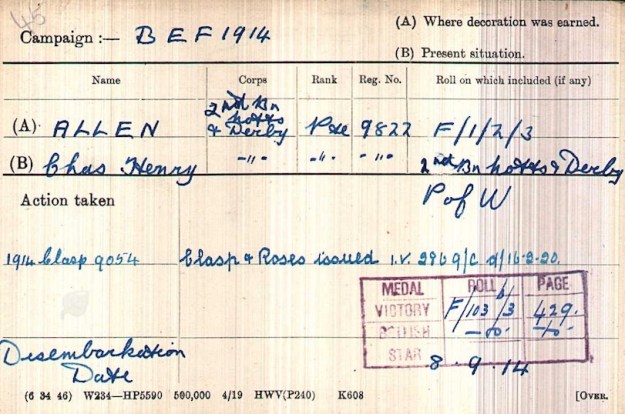 46
Campaign :— B E F 1914
(A) Where decoration was earned.
(B) Present situation.
Name Corps Rank Reg. No. Roll on which included (if any)
(A) ALLEN 2nd Bn Notts & Derby Pte 9822 F/1/2/3
(B) Chas Henry -"- -"- -"- 2nd Bn Notts & Derby
Action taken P of W
1914 Clasp 9054 Clasp & Roses issued I.V. 2969/C d/16-2-20.
MEDAL ROLL PAGE
VICTORY F/103 b/3 429.
BRITISH -do- -do-
STAR 8.9.14
Disembarkation
Date
(6 34 46) W234—HP5590 500,000 4/19 HWV(P240) K608 [OVER.